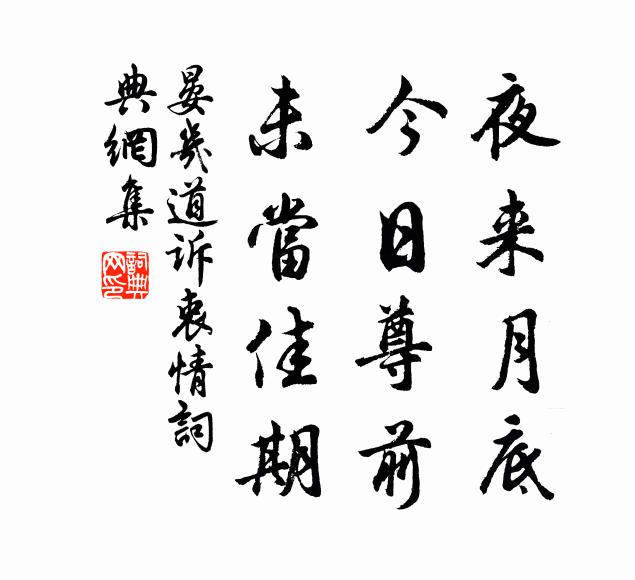 夜来月底
今日尊前
未當佳期
晏幾道訴衷情詞
典網集
詞典
网印